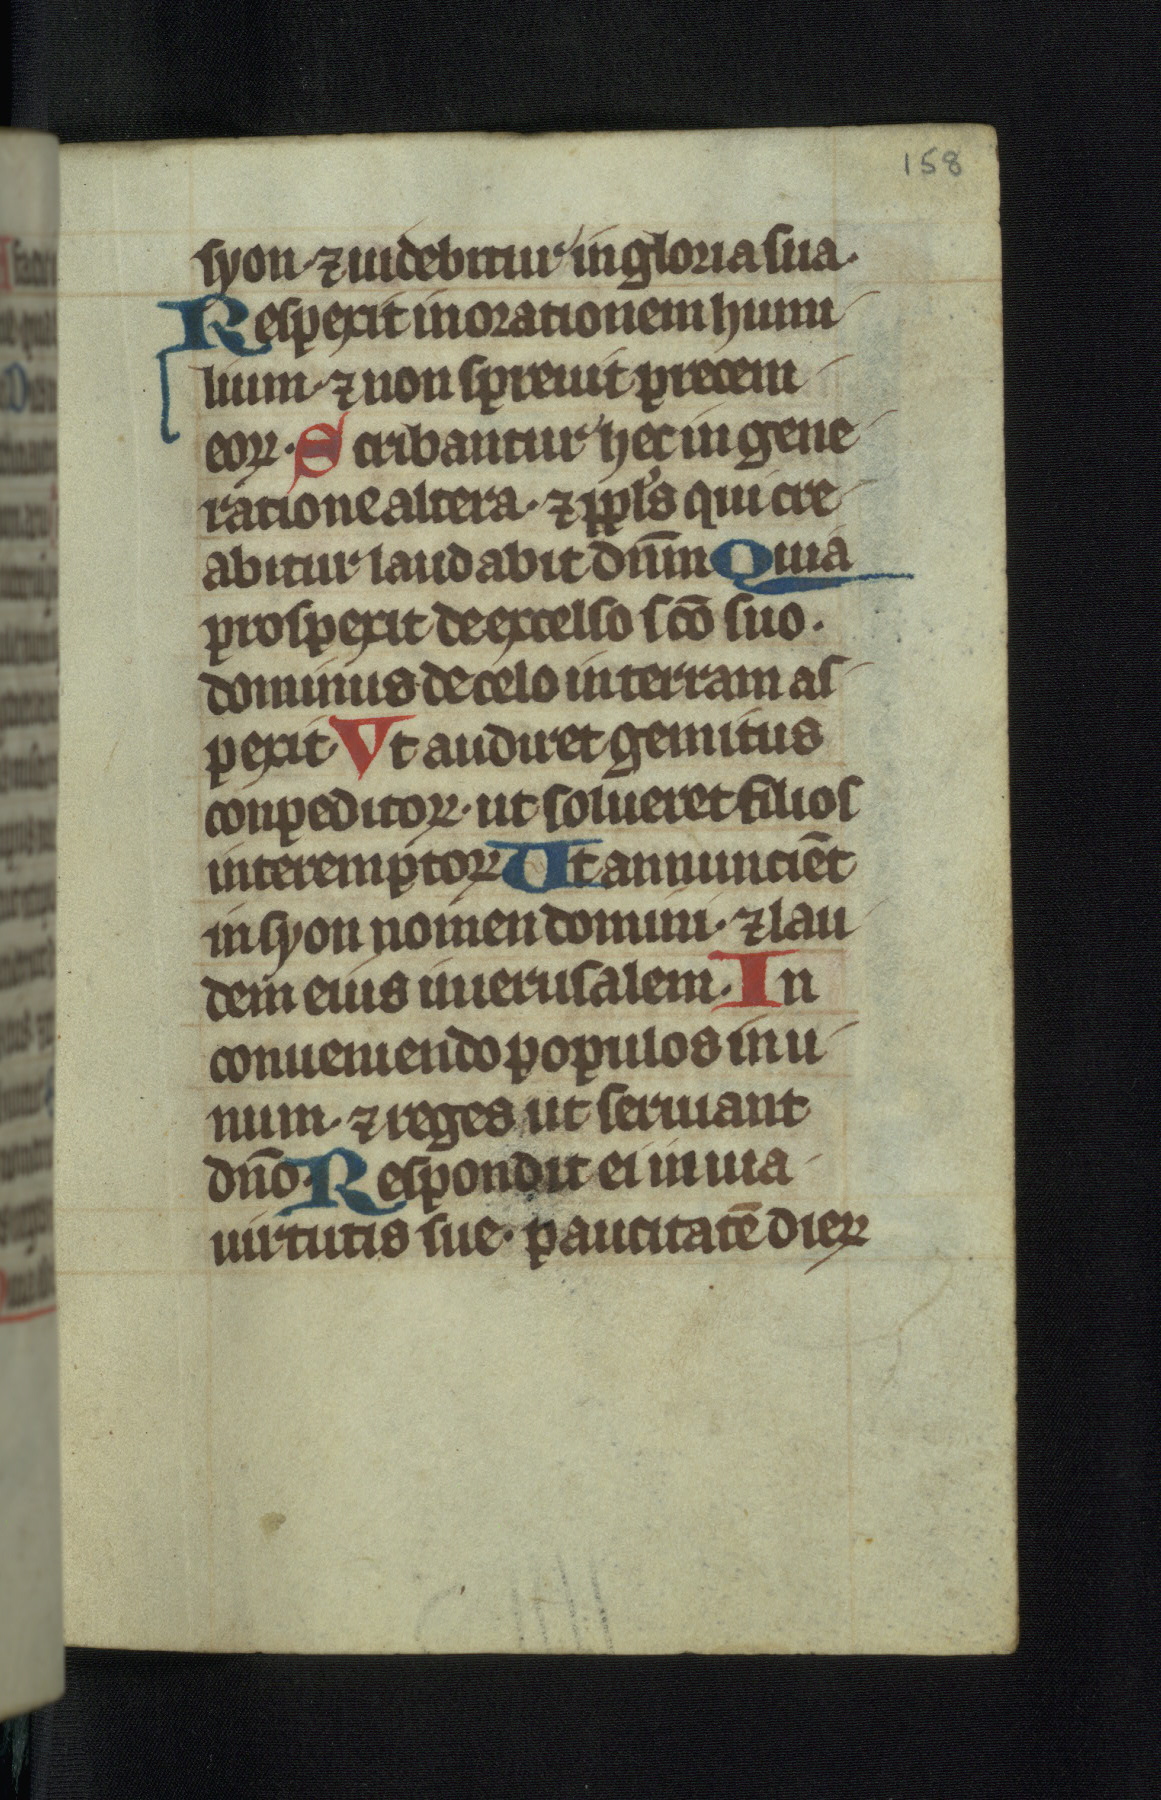 158
syon · ⁊ uidebitur in gloria sua ·
Respexit in orationem humi
lium · ⁊ non spreuit precem
eoꝝ · Scribantur hec in gene
ratione altera · ⁊ ppl's qui cre
abitur laudabit dn̄m Quia
prospexit de excelso sc̄o suo ·
dominus de celo in terram as
pexit · Vt audiret gemitus
conpeditoꝝ · ut solueret filios
interemptoꝝ Ut annunciēt
in syon nomen domini · ⁊ lau
dem eius in ierusalem · In
conueniendo populos in u
num · ⁊ reges ut seruiant
dn̄o · Respondit ei in uia
uirtutis sue · paucitatē dieꝝ